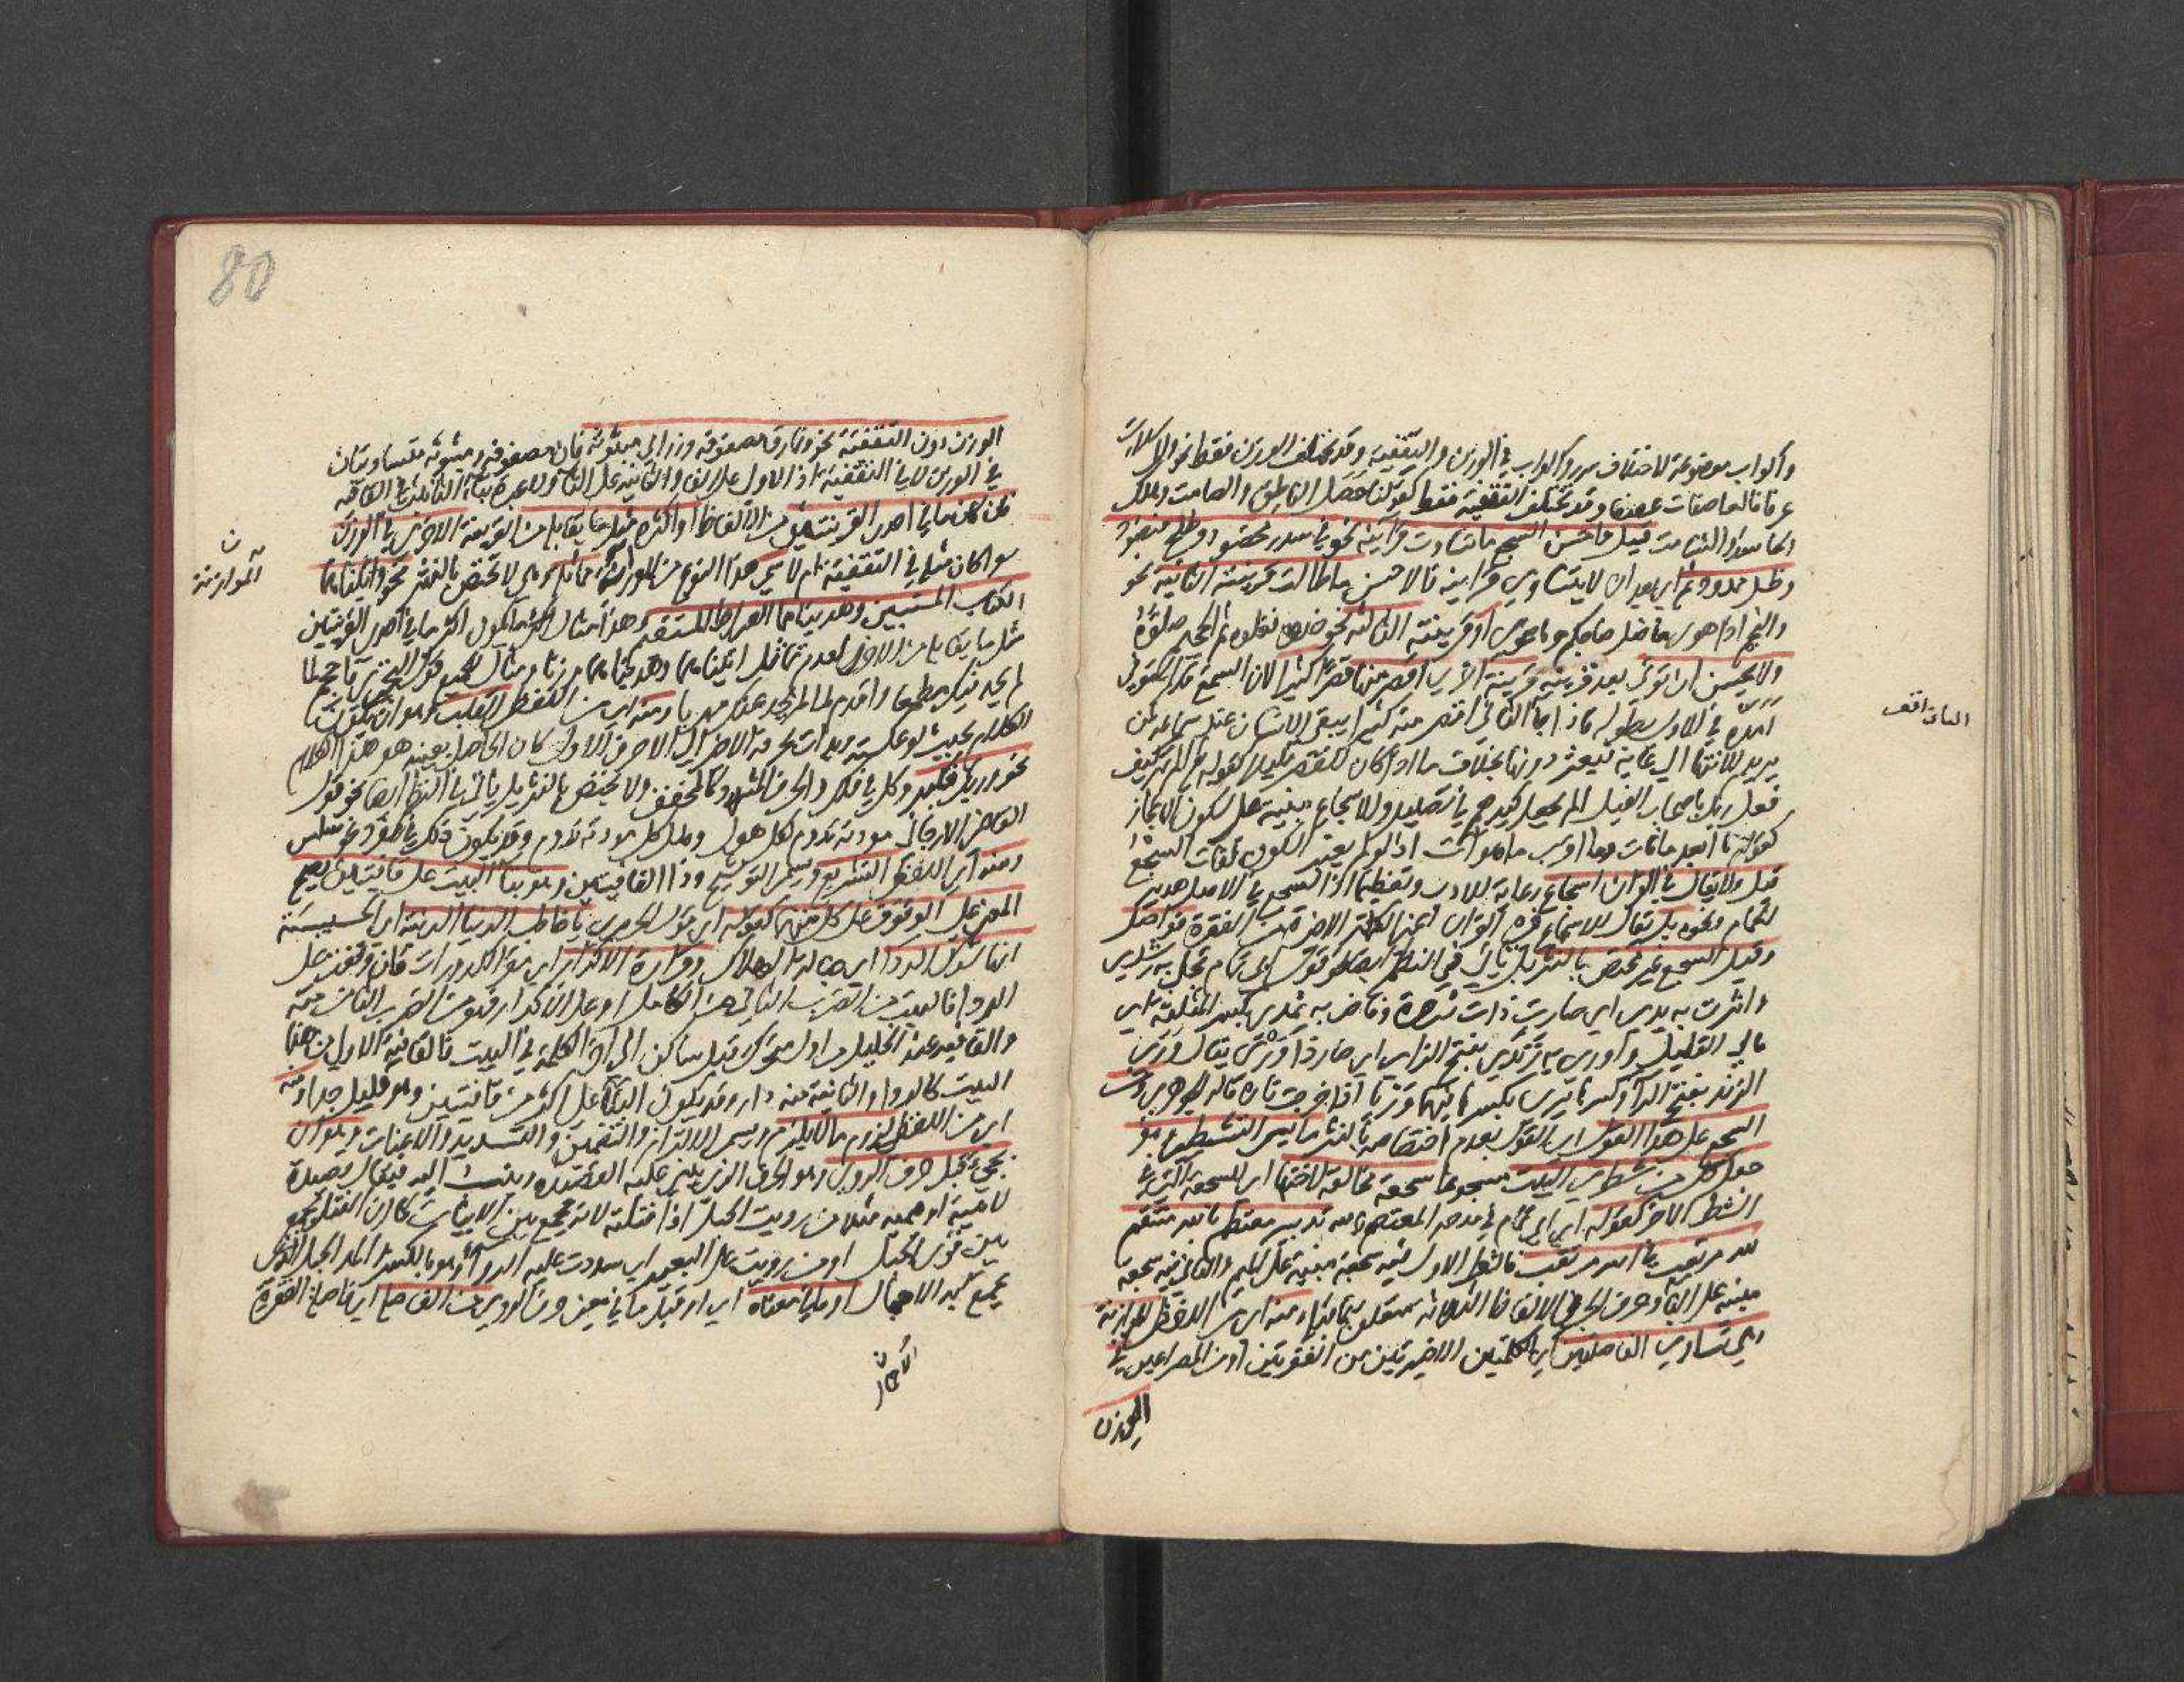 واكواب موضوعة لاختلاف سرر واكواب في الوزن والتقفية وقد يختلف الوزن فقط نحو والمرسلات
عرفا فالعاصفات عصفا وقد تختلف التقفية فقط كقولنا حصل الناطق والصامت وهلك
الحاسد والشامت قيل واحسن السجع ما تساوت قراينه نحو في سدر مخضود وطلح منضود
وظل ممدود ثم اي بعد ان لا يتساوى قراينه فالاحسن ما طالت قرينته الثانية نحو
والنجم اذا هوى ما ضل صاحبكم وما غوى او قرينته الثالثة نحو خذوه فغلوه ثم الجحيم صلوه
ولا يحسن ان يؤتى بعد قرينة قرينة اخرى اقصر منها قصرا كثيرا لان السجع قد استوفى
امده في الاول بطوله فاذا جاء الثاني اقصر منه كثيرا يبقى الانسان عند سماعه كمن
يريد الانتهاء الى غاية فيعثر دونها بخلاف ما اذا كان القصر قليلا كقوله تعالى الم تر كيف
فعل ربك باصحاب الفيل الم يجعل كيدهم في تضليل والاسجاع مبنية على سكون الاعجاز
كقولهم ما ابعد ما فات وما اقرب ما هو آت اذ لو لم يعتبر السكون لفات السجع
قيل ولا يقال في القران اسجاع رعاية للادب وتعظيما اذ السجع في الاصل هدير
الحمام ونحوه بل يقال للاسجاع في القران اعني الكلمة الاخيرة من الفقرة فواصل
وقيل السجع غير مختص بالنثر بل يأتي في النظم ايضا كقول ابي تمام تجلى به رشدي
واثرت به يدي اي صارت ذات ثروة وفاض به ثمدي بكسر المثلثة اي
مالي القليل واورى به زندي بفتح الزاي اي صار ذا وري يقال وري
الزند بفتح الراء وكسرها يرى بكسرها فيهما وريا اذا خرجت ناره قاله الجوهري ومن
السجع على هذا القول اي القول بعدم اختصاصه بالنثر ما يسمى التشطير وهو
جعل كل من شطري البيت مسجوعا سجعة مخالفة لاختها اي للسجعة التي في
الشطر الاخر كقوله اي ابي تمام في مدحه المعتصم بالله تدبير معتصم بالله منتقم
لله مرتغب في الله مرتقب فالشطر الاول فيه سجعة مبنية على الميم والثاني فيه سجعة
مبنية على الباء وحرف الجر في الالفاظ الثلاثة متعلق بما يليه ومنه اي من اللفظي الموازنة
وهي تساوي الفاصلتين اي الكلمتين الاخيرتين من الفقرتين او من المصراعين في
الوزن
الوزن دون التقفية نحو ونمارق مصفوفة وزرابي مبثوثة فان مصفوفة ومبثوثة متساويتان
في الوزن لا في التقفية اذ الاول على الفاء والثانية على الثاء ولا عبرة بتاء التأنيث في القافية
فان كان ما في احدى القرينتين من الالفاظ او اكثره مثل ما يقابله من القرينة الاخرى في الوزن
سواء كان مثله في التقفية ام لا سمي هذا النوع من الموازنة مماثلة وهي لا تختص بالنثر نحو واتيناهما
الكتاب المستبين وهديناهما الصراط المستقيم وهذا مثال لما يكون اكثر ما في احدى القرينتين
مثل ما يقابله من الاخرى لعدم تماثل اتيناهما وهديناهما وزنا ومثال الجميع قول البحتري فاحجم لما
لم يجد فيك مطمعا واقدم لما لم يجد عنك مهربا ومنه اي من اللفظي القلب وهو ان يكون
الكلام بحيث لو عكسته وبدات بحرفه الاخير الى الحرف الاول كان الحاصل بعينه هو هذا الكلام
نحو وربك فكبر وكل في فلك والحرف المشدد كالمخفف ولا يختص بالنثر بل يأتي في النظم ايضا نحو قول
القاضي الارجاني مودته تدوم لكل هول وهل كل مودته تدوم وقد يكون ذلك في المفرد نحو سلس
ومنه اي اللفظي التشريع ويسمى التوشيح وذا القافيتين وهو بناء البيت على قافيتين يصح
المعنى على الوقوف على كل منهما كقوله اي قول الحريري يا خاطب الدنيا الدنية اي الخسيسة
انها شرك الردى اي حبالة الهلاك وقرارة الاكدار اي مقر الكدورات فان وقفت على
الردى فالبيت من الضرب الثامن من الكامل او على الاكدار فهو من الضرب الثاني منه
والقافية عند الخليل من اول متحرك قبل ساكن الى اخر الكلمة في البيت فالقافية الاولى من هذا
البيت كالردى والثانية منه دار وقد يكون البناء على اكثر من قافيتين وهو قليل جدا ومنه
اي من اللفظي لزوم ما لا يلزم ويسمى الالتزام والتضمين والتشديد والاعنات وهو ان
يجيء قبل حرف الروي وهو الحرف الذي تبنى عليه القصيدة وتنسب اليه فيقال قصيدة
لامية او ميمية مثلا من رويت الحبل اذا فتلته لانه يجمع بين الابيات كما ان الفتل يجمع
بين قوى الحبل او من رويت على البعير اي شددت عليه الرواء وهو بالكسر والمد الحبل الذي
يجمع به الاحمال او ما في معناه اي او قبل ما في معنى حرف الروي من الفاصلة اي فاصلة الفقرة
الموازنة